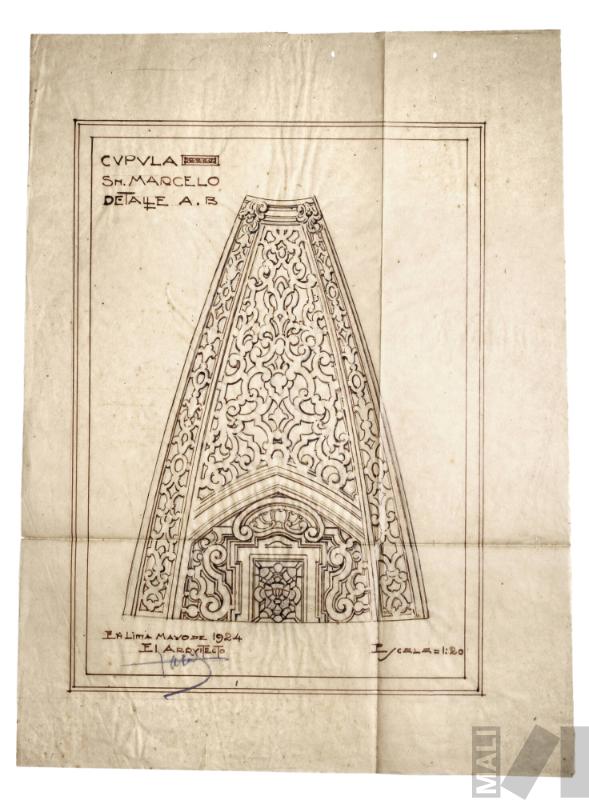 CVPVLA
SN. MARCELO
DETALLE A. B
EN LIMA MAYO DE 1924
EL ARQVITECTO
ESCALA = 1:20
MALI